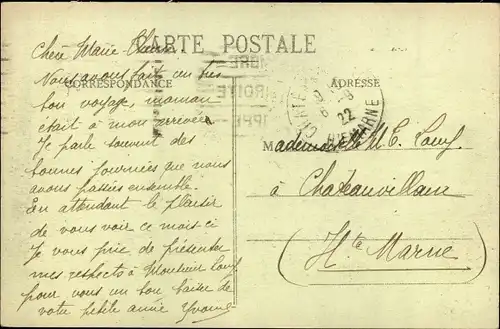 CARTE POSTALE
CORRESPONDANCE
ADRESSE
Chère Marie-
Nous avons fait un très
bon voyage, maman
était à mon arrivée
Je parle souvent des
bonnes journées que nous
avons passées ensemble.
En attendant le plaisir
de vous voir ce mois-ci
Je vous prie de présenter
mes respects à Monsieur
pour vous un bon baiser de
votre petite amie Yvonne
Mademoiselle M. E.
à Chateauvillain
Hte Marne
22
MARNE